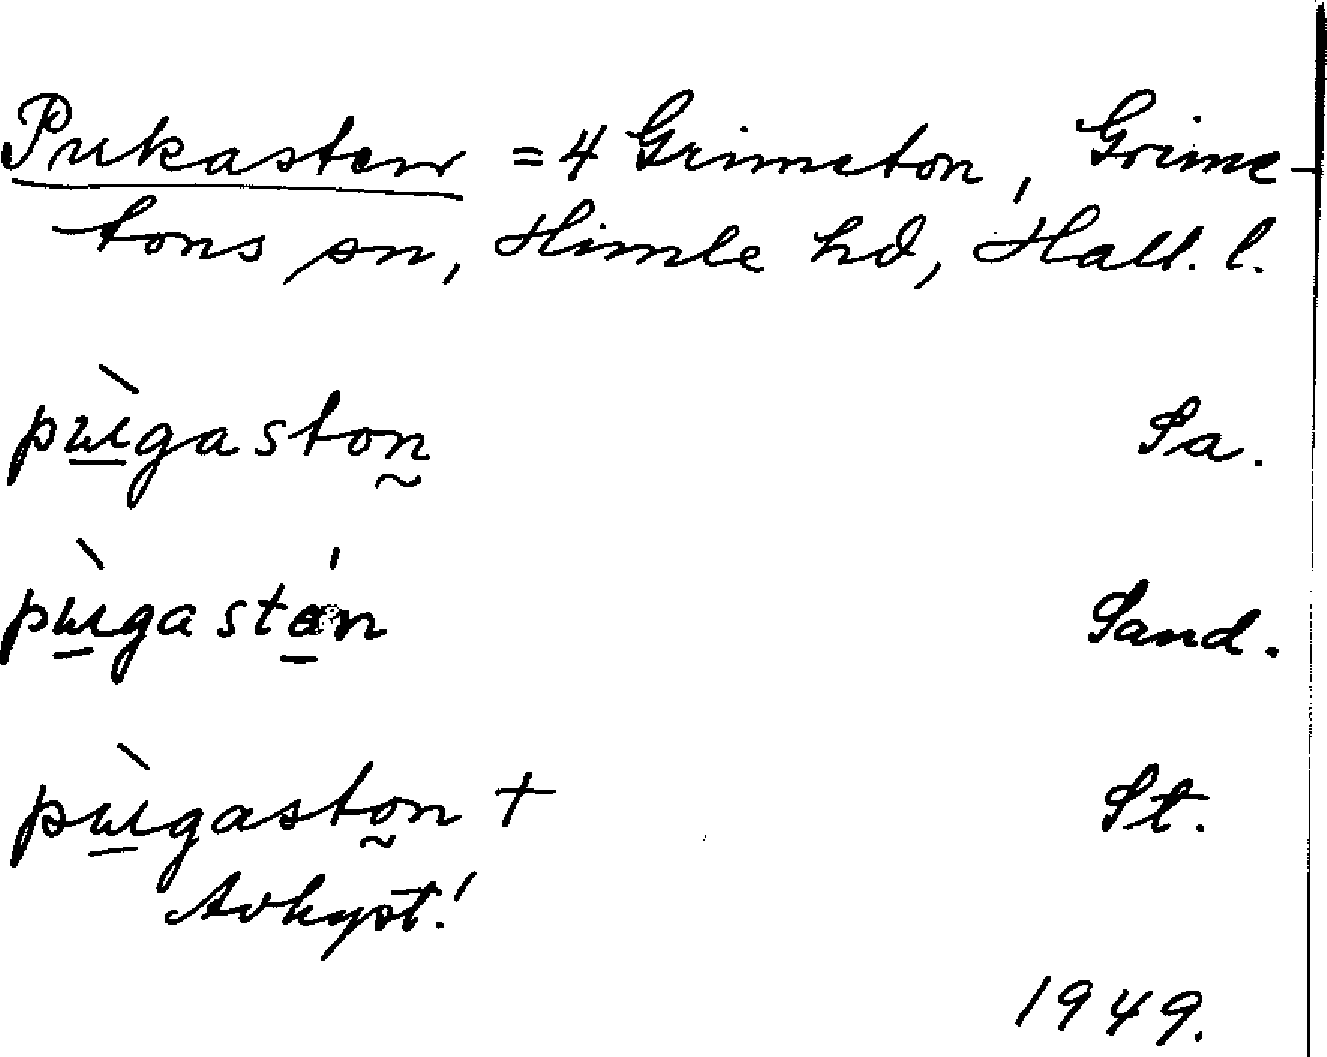 Pukasten = 4 Grimeton, Grime-
tons sn, Himle hd, Hall. l.
pùgaston Sa.
pùgastán Sand.
pùgaston + St.
Avkyst!
1949.